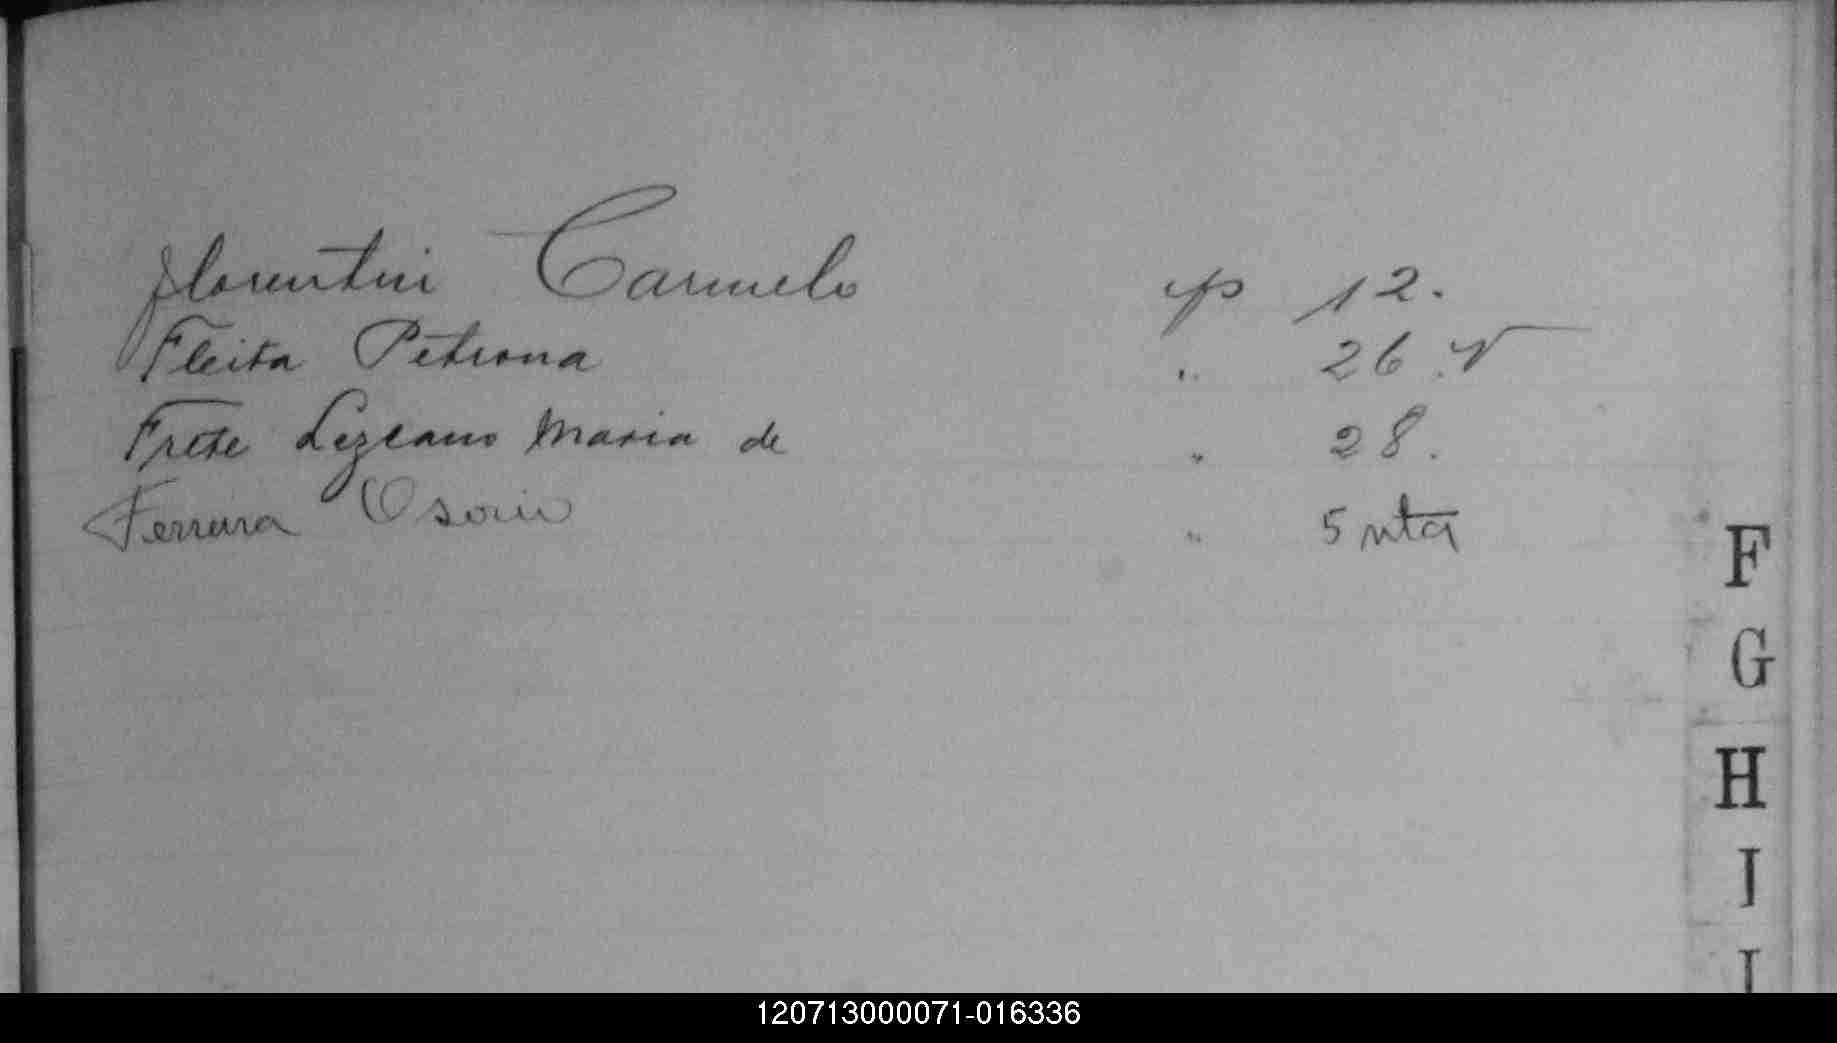 Florentin Carmelo p 12.
Fleita Petrona " 26.v
Frete Lezcano Maria de " 28.
Ferreira Osorio " 5 vta
F
G
H
I
J
120713000071-016336